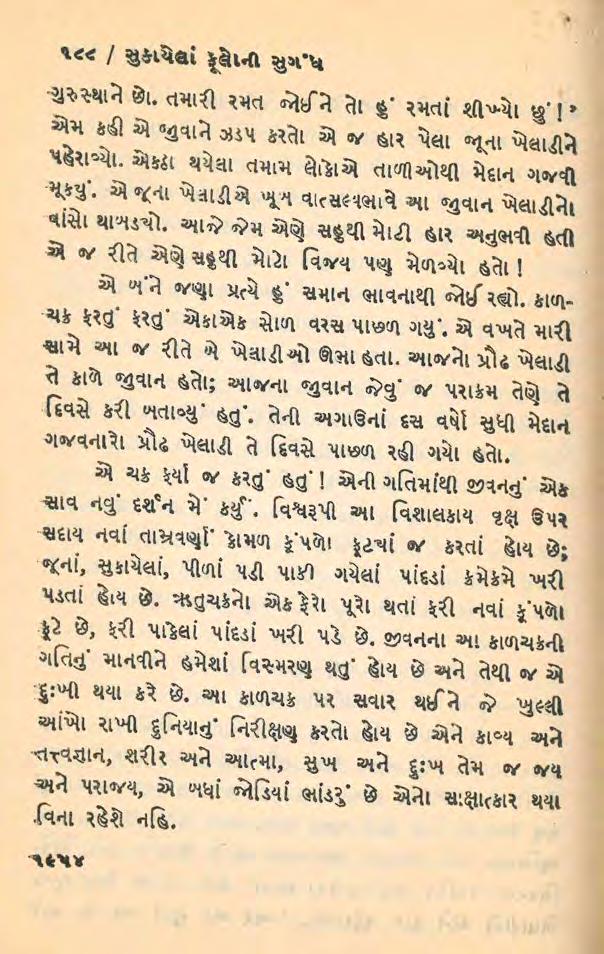 ૧૮૮ / સુકાયેલાં ફૂલોની સુગંધ
ગુરુસ્થાને છો. તમારી રમત જોઈને તો હું રમતાં શીખ્યો છું!’
એમ કહી એ જુવાને ઝડપ કરતો એ જ હાર પેલા જૂના ખેલાડીને
પહેરાવ્યો. એકઠા થયેલા તમામ લોકોએ તાળીઓથી મેદાન ગજવી
મૂકયું. એ જૂના ખેલાડીએ ખૂબ વાત્સલ્યભાવે આ જુવાન ખેલાડીનો
વાંસો થાબડયો. આજે જેમ એણે સહુથી મોટી હાર અનુભવી હતી
એ જ રીતે એણે સહુથી મોટો વિજય પણ મેળવ્યો હતો!
એ બંને જણા પ્રત્યે હું સમાન ભાવનાથી જોઈ રહ્યો. કાળ-
ચક્ર ફરતું ફરતું એકાએક સોળ વરસ પાછળ ગયું. એ વખતે મારી
સામે આ જ રીતે બે ખેલાડીઓ ઊભા હતા. આજનો પ્રૌઢ ખેલાડી
તે કાળે જુવાન હતો; આજના જુવાન જેવું જ પરાક્રમ તેણે તે
દિવસે કરી બતાવ્યું હતું. તેની અગાઉનાં દસ વર્ષો સુધી મેદાન
ગજવનારો પ્રૌઢ ખેલાડી તે દિવસે પાછળ રહી ગયો હતો.
એ ચક્ર ફર્યા જ કરતું હતું! એની ગતિમાંથી જીવનનું એક
સાવ નવું દર્શન મેં કર્યું. વિશ્વરૂપી આ વિશાલકાય વૃક્ષ ઉપર
સદાય નવાં તામ્રવર્ણાં કોમળ કૂંપળો ફૂટયાં જ કરતાં હોય છે;
જૂનાં, સુકાયેલાં, પીળાં પડી પાકી ગયેલાં પાંદડાં ક્રમેક્રમે ખરી
પડતાં હોય છે. ઋતુચક્રનો એક ફેરો પૂરો થતાં ફરી નવાં કૂંપળો
ફૂટે છે, ફરી પાકેલાં પાંદડાં ખરી પડે છે. જીવનના આ કાળચક્રની
ગતિનું માનવીને હમેશાં વિસ્મરણ થતું હોય છે અને તેથી જ એ
દુઃખી થયા કરે છે. આ કાળચક્ર પર સવાર થઈને જે ખુલ્લી
આંખો રાખી દુનિયાનું નિરીક્ષણ કરતો હોય છે એને કાવ્ય અને
તત્ત્વજ્ઞાન, શરીર અને આત્મા, સુખ અને દુઃખ તેમ જ જય
અને પરાજય, એ બધાં જોડિયાં ભાંડરું છે એનો સાક્ષાત્કાર થયા
વિના રહેશે નહિ.
૧૯૫૪